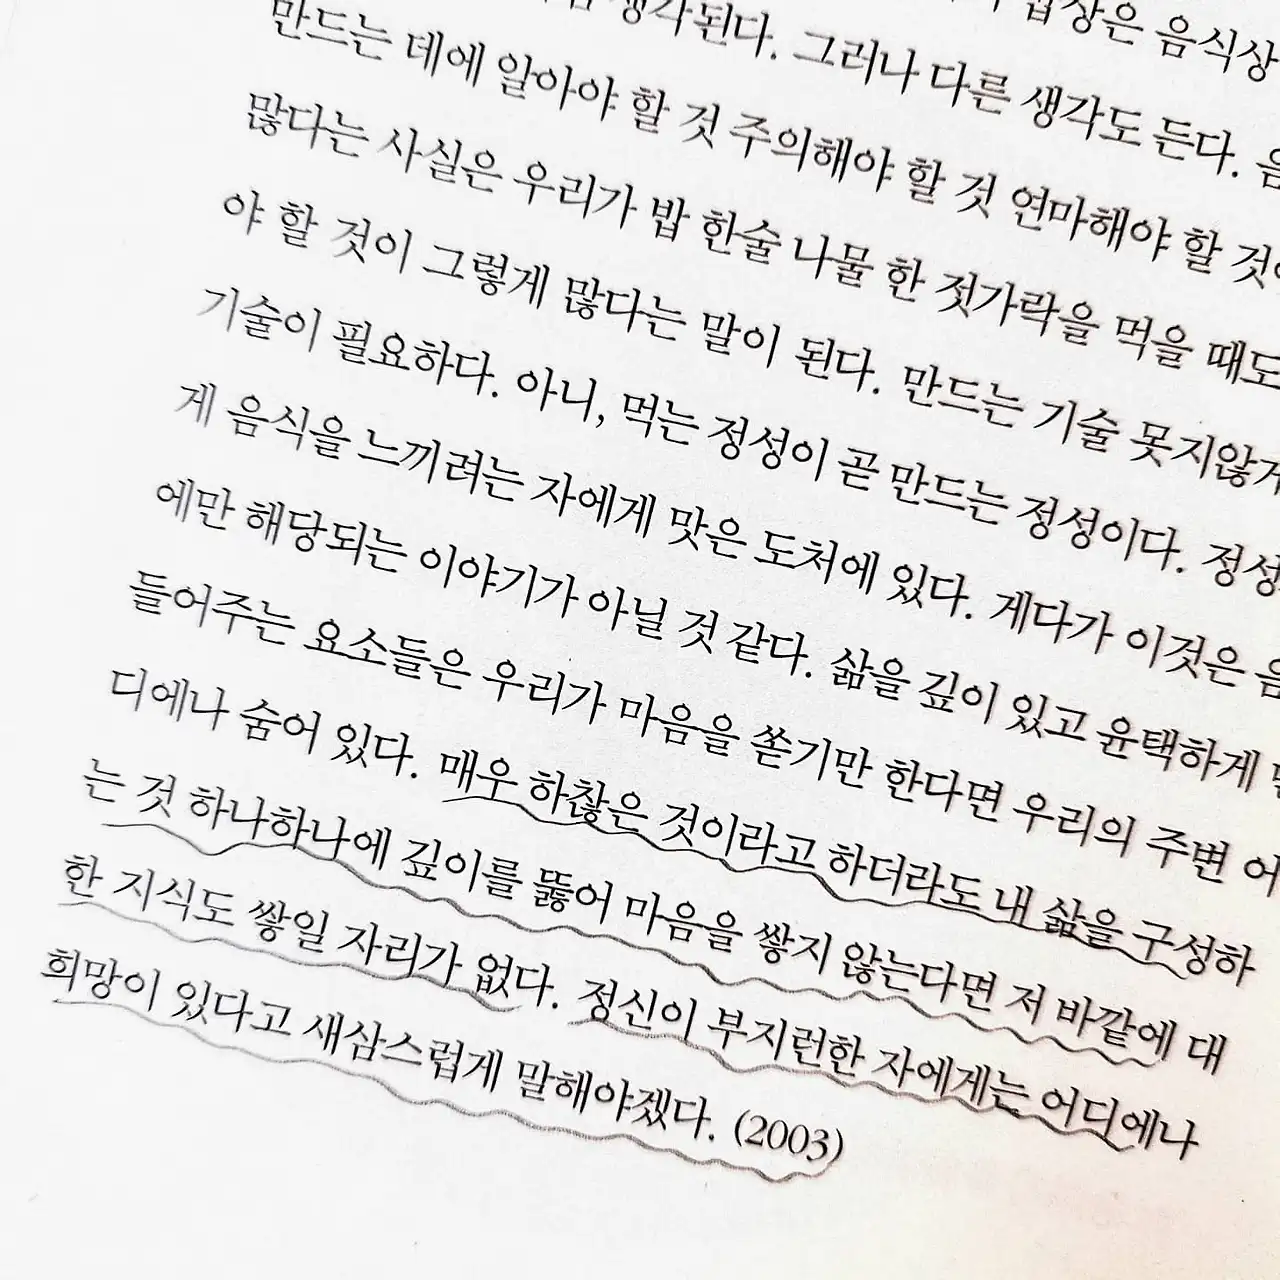 밥상은 음식상
생각된다. 그러나 다른 생각도 든다.
만드는 데에 알아야 할 것 주의해야 할 것 연마해야 할 것
많다는 사실은 우리가 밥 한술 나물 한 젓가락을 먹을 때도
야 할 것이 그렇게 많다는 말이 된다. 만드는 기술 못지않게
기술이 필요하다. 아니, 먹는 정성이 곧 만드는 정성이다. 정성
게 음식을 느끼려는 자에게 맛은 도처에 있다. 게다가 이것은 음
에만 해당되는 이야기가 아닐 것 같다. 삶을 깊이 있고 윤택하게
들어주는 요소들은 우리가 마음을 쏟기만 한다면 우리의 주변 어
디에나 숨어 있다. 매우 하찮은 것이라고 하더라도 내 삶을 구성하
는 것 하나하나에 깊이를 뚫어 마음을 쌓지 않는다면 저 바깥에 대
한 지식도 쌓일 자리가 없다. 정신이 부지런한 자에게는 어디에나
희망이 있다고 새삼스럽게 말해야겠다. (2003)